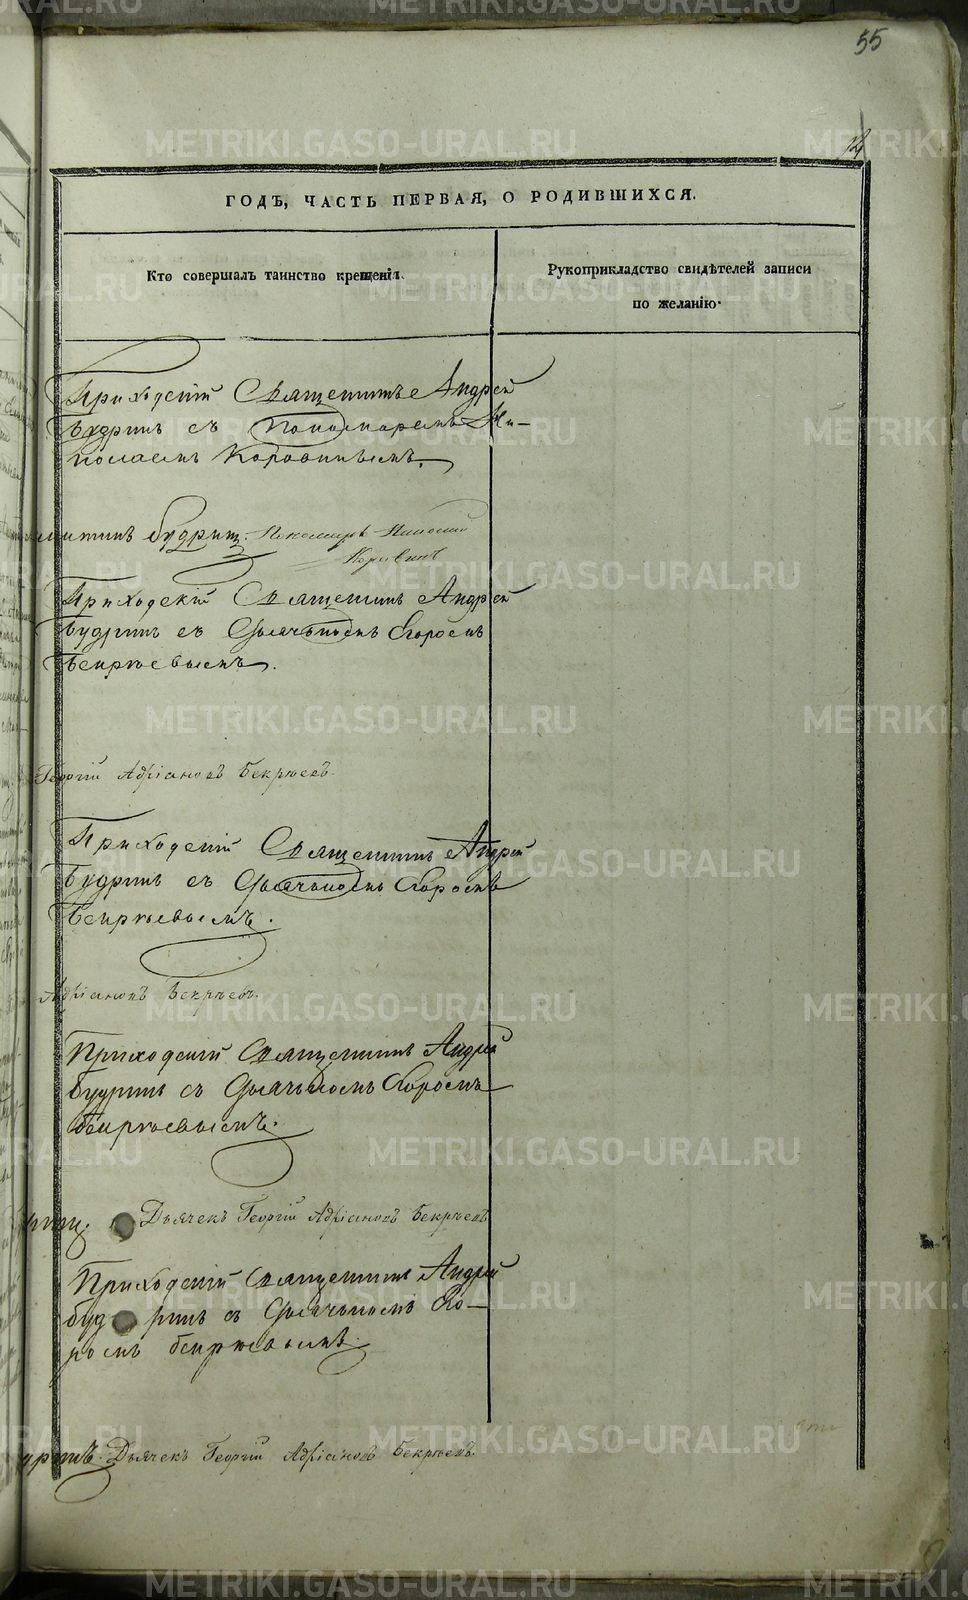 55
ГОДЪ, ЧАСТЬ ПЕРВАЯ, О РОДИВШИХСЯ.
Кто совершалъ таинство крещенія.
Рукоприкладство свидѣтелей записи
по желанію.
Приходскій Священникъ Андрей
Будринъ съ Пономаремъ Ни-
колаемъ Коровинымъ.
Будрин. Пономарь Николай
Коровинъ
Приходскій Священникъ Андрей
Будринъ съ Дьячькомъ Егоромъ
Бекрѣевымъ.
Георгій Адріановъ Бекрѣевъ.
Приходскій Священникъ Андрей
Будринъ съ Дьячькомъ Егоромъ
Бекрѣевымъ.
Адріановъ Бекрѣевъ.
Приходскій Священникъ Андрей
Будринъ съ Дьячькомъ Егоромъ
Бекрѣевымъ.
Дьячекъ Георгій Адріановъ Бекрѣевъ
Приходскій Священникъ Андрей
Будринъ съ Дьячькомъ Его-
ромъ Бекрѣевымъ.
Дьячекъ Георгій Адріановъ Бекрѣевъ
METRIKI.GASO-URAL.RU